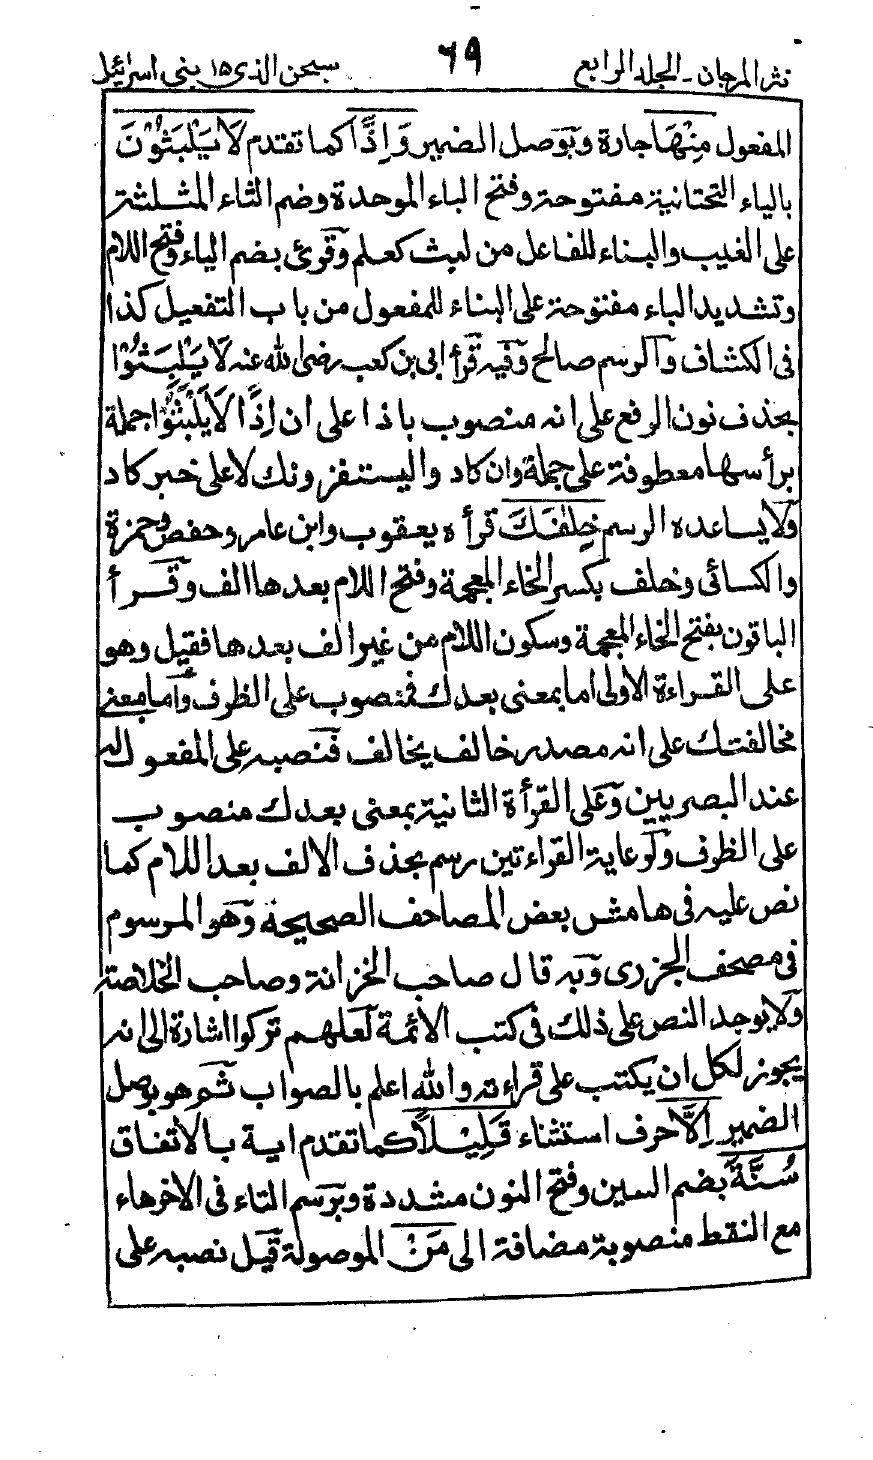 نثر المرجان ـ الجلد الرابع
٦٩
سبحن الذى ١٥ بنى اسرائيل
المفعول مِنْهَا جارة وبوصل الضمير وَإِذًا كما تقدم لَا يَلْبَثُوْنَ
بالياء التحتانية مفتوحة وفتح الباء الموحدة وضم الثاء المثلثة
على الغيب والبناء للفاعل من لبث كعلم وقرئ بضم الياء وفتح اللام
وتشديد الباء مفتوحة على البناء للمفعول من باب التفعيل كذا
فى الكشاف والرسم صالح وفيه قرأ ابى بن كعب رضى الله عنه لَا يَلْبَثُوْا
بحذف نون الرفع على انه منصوب باذا على ان إِذًا لَا يَلْبَثُوْا جملة
برأسها معطوفة على جملة وان كاد واليستفزونك لا على خبر كاد
ولا يساعده الرسم خِلٰفَكَ قرأه يعقوب وابن عامر وحفص وحمزة
والكسائى وخلف بكسر الخاء المعجمة وفتح اللام بعدها الف وقرأ
الباقون بفتح الخاء المعجمة وسكون اللام من غير الف بعدها فقيل وهو
على القراءة الاولى اما بمعنى بعدك فمنصوب على الظرف وأما بمعنى
مخالفتك على انه مصدر خالف يخالف فنصبه على المفعول له
عند البصريين وعلى القرأة الثانية بمعنى بعدك منصوب
على الظرف ولرعاية القراءتين رسم بحذف الالف بعد اللام كما
نص عليه فى هامش بعض المصاحف الصحيحة وهو المرسوم
فى مصحف الجزرى وبه قال صاحب الخزانة وصاحب الخلاصة
ولا يوجد النص على ذلك فى كتب الائمة لعلهم تركوا اشارة الى انه
يجوز لكل ان يكتب على قراءته والله اعلم بالصواب ثم هو بوصل
الضمير إِلَّا حرف استثناء قَلِيْلًا كما تقدم اية بالاتفاق
سُنَّةَ بضم السين وفتح النون مشددة وبرسم التاء فى الاخر هاء
مع النقط منصوبة مضافة الى مَنْ الموصولة قيل نصبه على